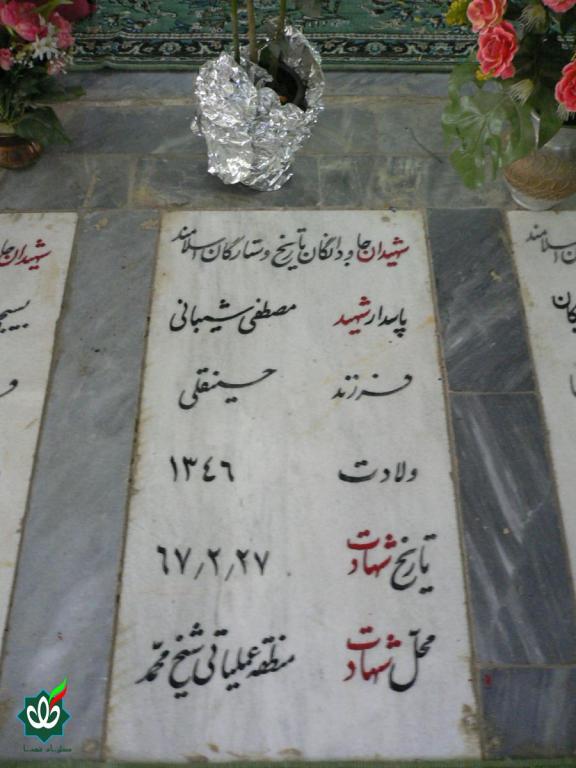 شهیدان جاودانگان تاریخ و ستارگان اسلامند
پاسدار شهید مصطفی شیبانی
فرزند حسینقلی
ولادت ۱۳۴۶
تاریخ شهادت ۶۷٫۲٫۲۷
محل شهادت منطقه عملیاتی شیخ محمد
شهیدان جا
بسیجی
اسلامند